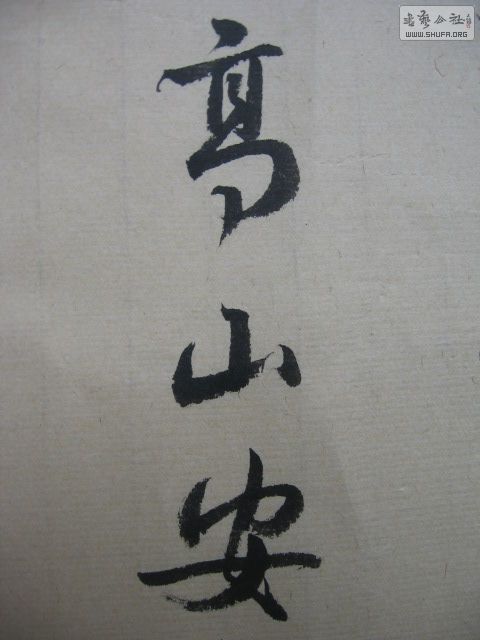 高山安
書藝公社
WWW.SHUFA.ORG